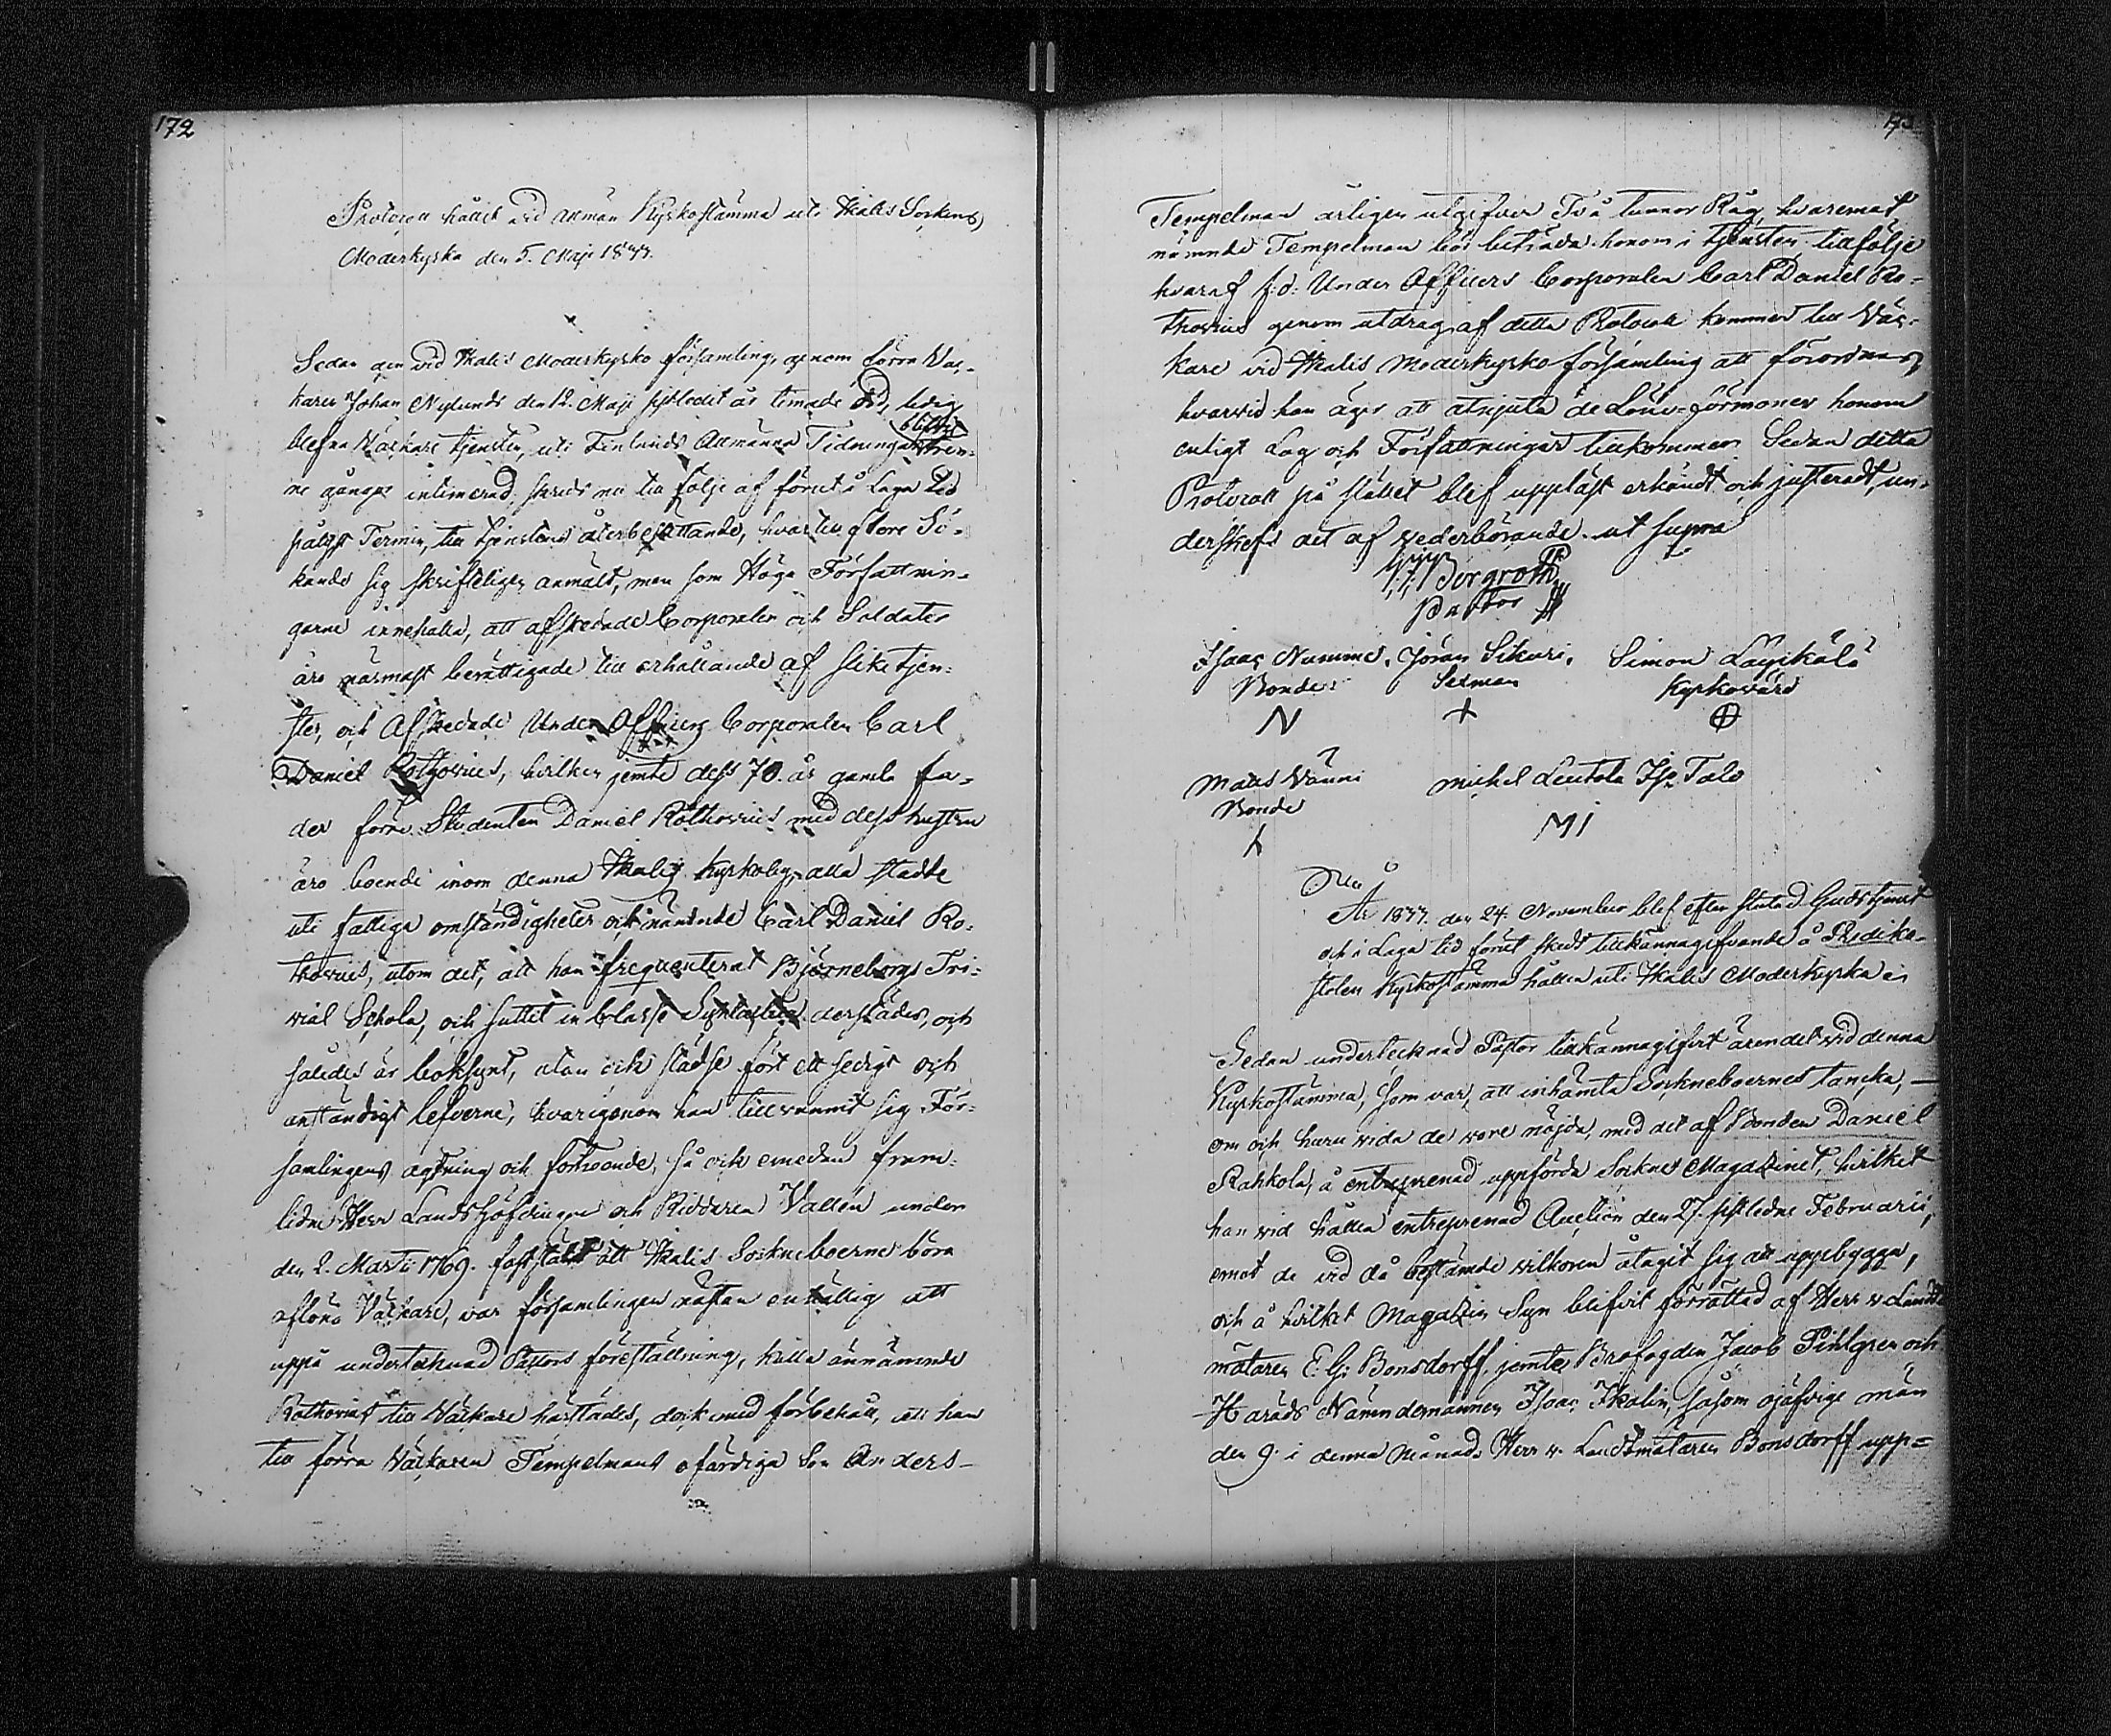 172
Protocoll hållit vid allmän Kyrkostämma uti Ikalis Sockens
Moderkyrka den 5. Maji 1833.
Sedan den vid Ikalis Moderkyrko församling, genom förra Väc-
karen Johan Nylunds den 12. Maji sistledit år timade död, ledig
blefna Väckare tjensten, uti Finlands Allmänna Tidningar
blifvit
tren-
ne gånger intimerad, skreds nu till följe af förut å Laga tid
pålyst Termin, till tjenstens återbesättande, hvartill flere Sö-
kande sig skrifteligen anmält, men som Höga Författnin-
garne innehålla, att afskedade Corporaler och Soldater
äro närmast berättigade till erhållande af slike tjen-
ster, och Afskedade Under Officers Corporalen Carl
Daniel Rothovius, hvilken jemte dess 70. år gamla fa-
der förre Studenten Daniel Rothovius med dess hustru
äro boende inom denna Ikalis Kyrkoby, alla stadde
uti fattiga omständigheter och nämnde Carl Daniel Ro-
thovius, utom det, att han frequenterat Björneborgs Tri-
vial Schola, och suttit in Classe Syntactica derstädes, och
således är boksynt, utan ock städse fört ett sedigt och
anständigt lefverne, hvarigenom han tillvunnit sig För-
samlingens agtning och förtroende, så ock emedan fram-
lidne Herr Landshöfdingen och Riddaren Vallén under
den 2. Martii 1769. fastställt att Ikalis Sockneboerne böra
aflöna Väckare, var församlingen nästan enhällig att
uppå undertecknad Pastors föreställning, kalla ännämnde
Rothovius till Väckare härstädes, dock med förbehåll, att han
till förra Väckaren Tempelmans ofärdiga Son Anders
Tempelman årligen utgifver Två tunnor Råg, hvaremot
nämnde Tempelman bör biträda honom i tjensten, till följe
hvaraf f: d: Under Officers Corporalen Carl Daniel Ro-
thovius genom utdrag af detta Protocoll kommer till Väc-
kare vid Ikalis Moderkyrko församling att förordnas,
hvarvid han äger att åtnjuta de Löne-förmoner honom
enligt Lag och Författningar tillkommer. Sedan detta
Protocoll på stället blef uppläst erkändt och justeradt, un-
derskrefs det af vederbörande. ut supra
Bergroth
Pastor
Isaac Numme, Jöran Sikuri, Simon Läyikälä
Bonde Sexman Kyrkovärd
N + 
Matts Vänni michel Leutola Iso Talo
Bonde
X MI
År 1833. den 24. November blef efter slutad Gudstjenst
och i Laga tid förut skedt tillkännagifvande å Prediko-
stolen Kyrkostämma hållen uti Ikalis Moderkyrka
Sedan undertecknad Pastor tillkännagifvit ärendet vid denna
Kyrkostämma, som var, att inhämta Sockneboernes tancka,
om och huru vida de vore nöjda, med det af Bonden Daniel
Rahkola, å entreprenad uppförda Sockne Magazinet, hvilket
han vid hållen entreprenad Auction den 27. sistledne Februarii,
emot de vid då bestämde vilkoren åtagit sig att uppbygga,
och å hvilket Magazin Syn blifvit förrättad af Herr v. Landt
mätaren E. G. Bonsdorff, jemte Brofogden Jacob Pihlgren och
Härads Nämndemannen Isaac Ikalin, såsom ojäfvige män
den 9. i denna Månad. Herr v. Landtmätaren Bonsdorff upp=